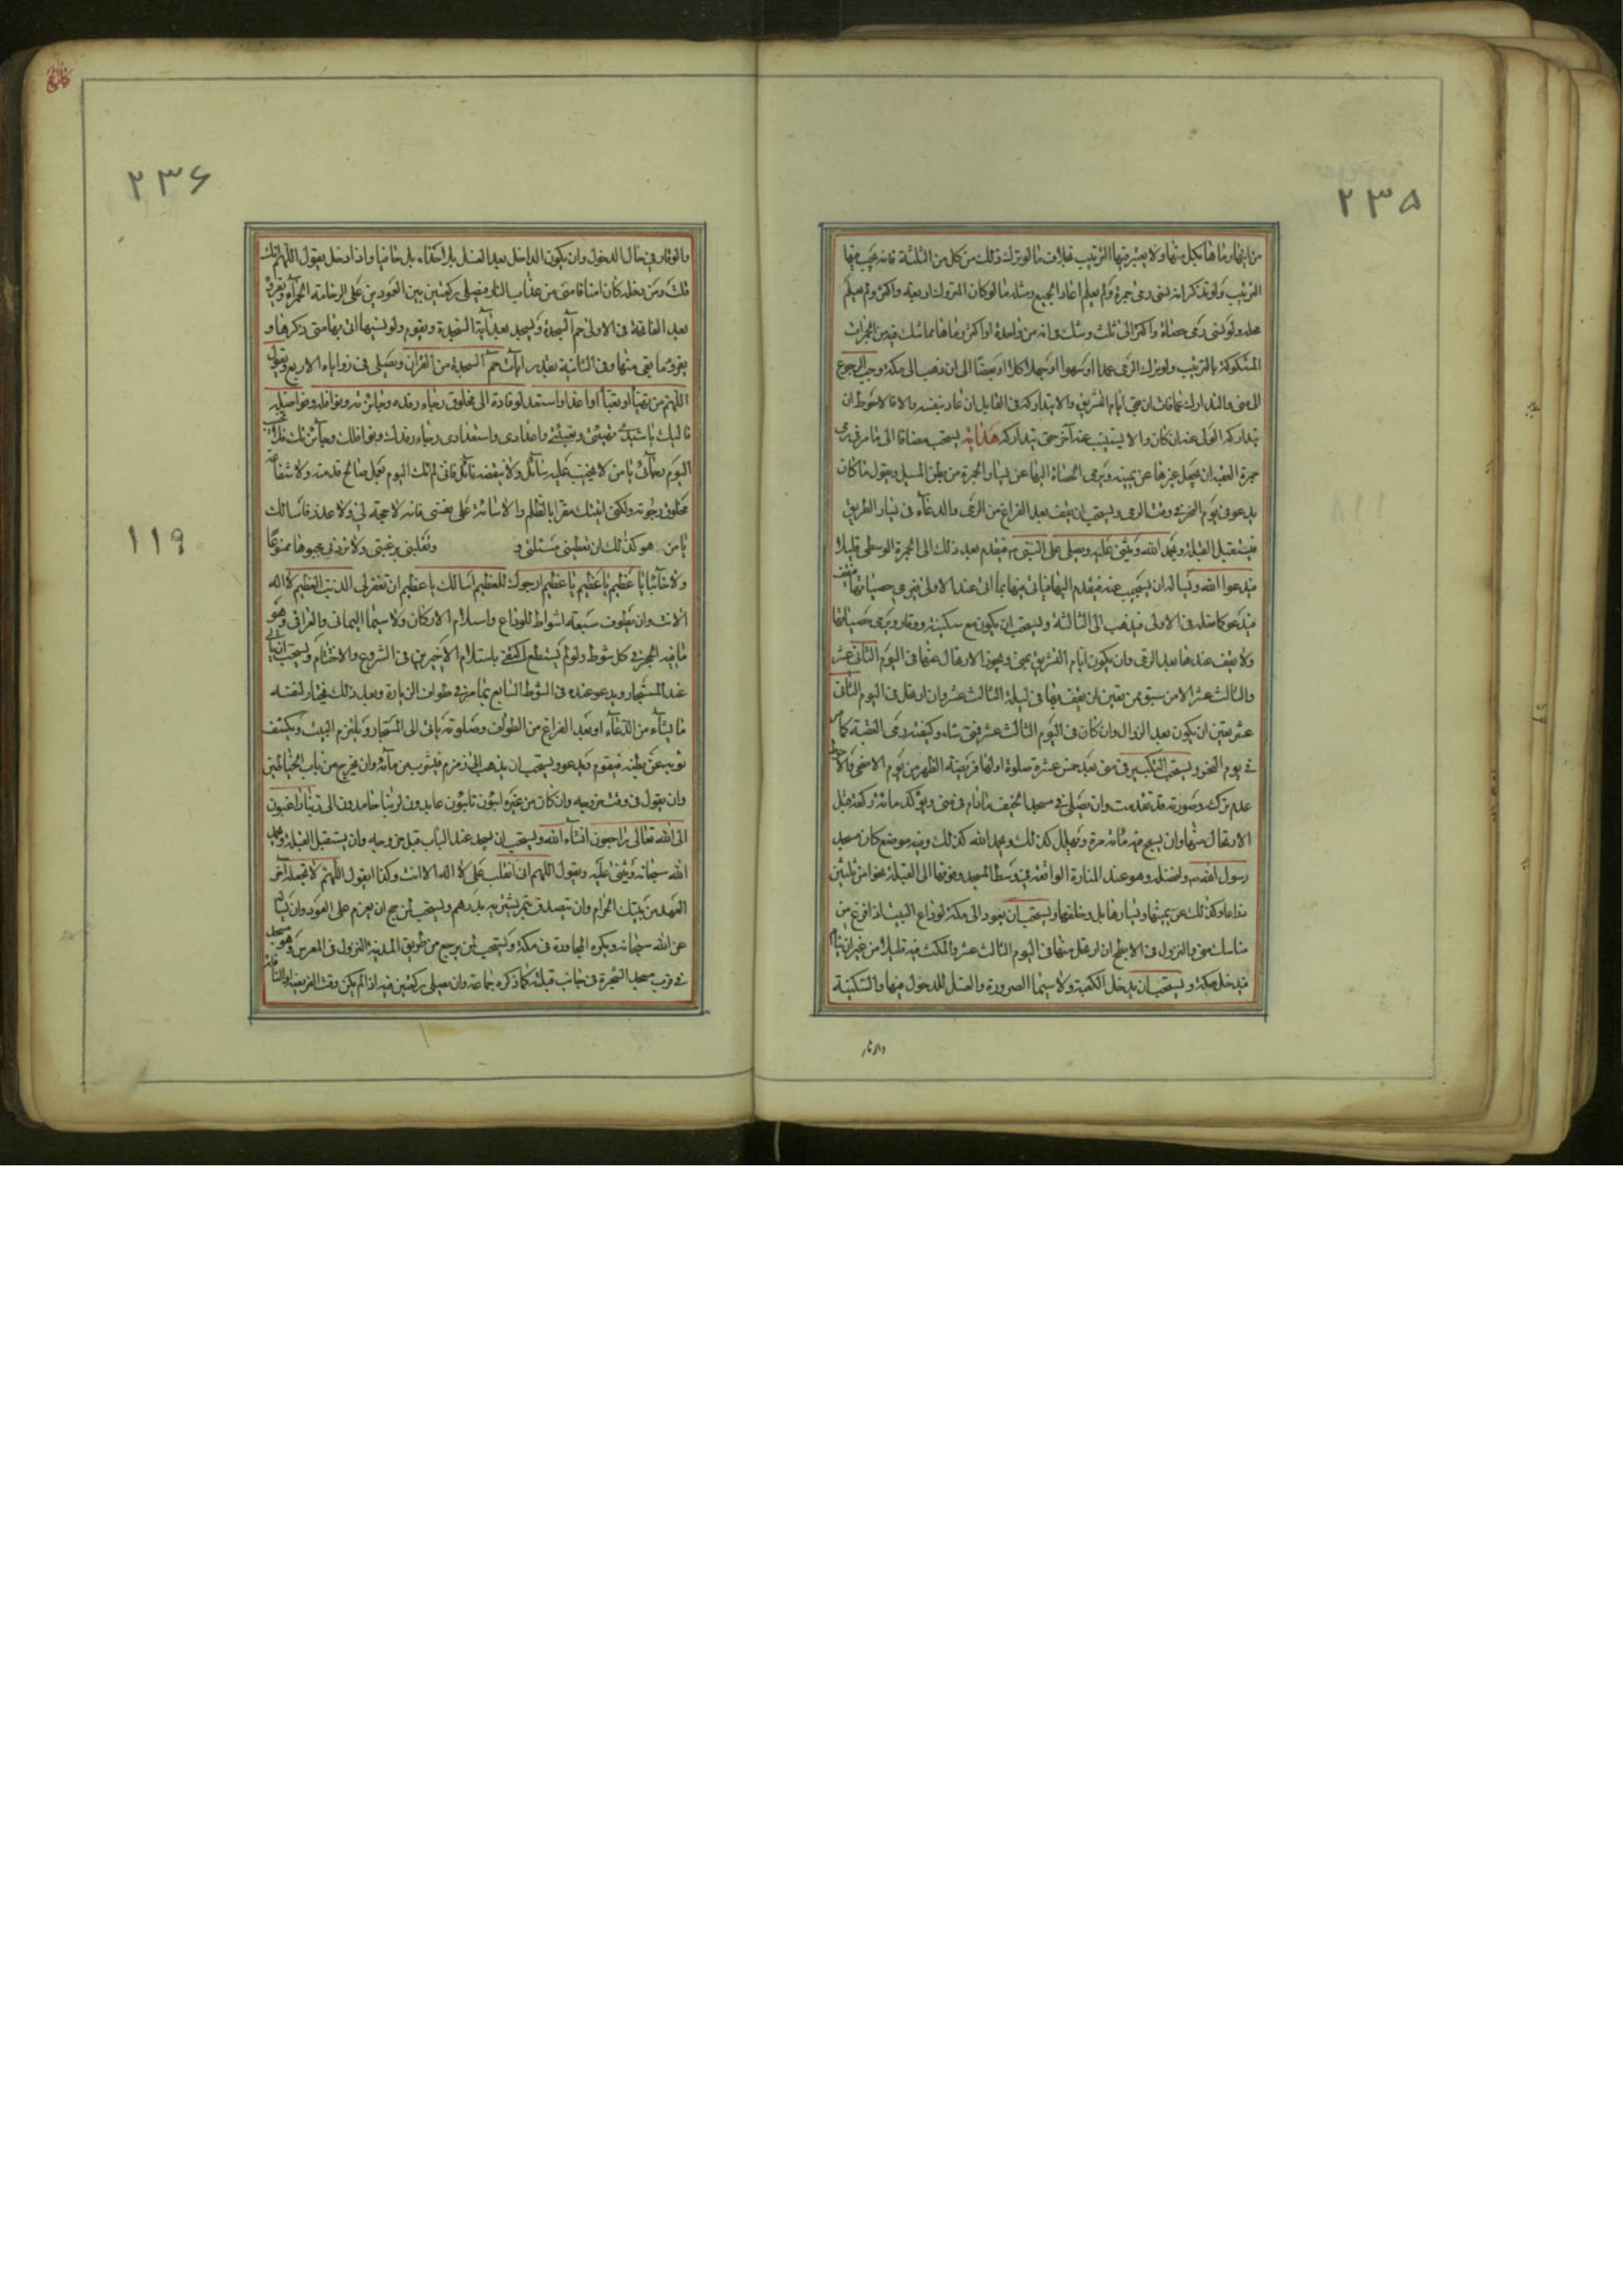 ٢٣٥
من ايها رماها بكل منها ولا يعتبر فيها الترتيب بخلاف ما لو ترك ذلك من كل من الثلثة فانه يجب فيها
الترتيب ولو تذكر انه نسى رمى جمرة ولم يعلم اعاد الجميع ومثله ما لو كان المتروك اربعة واكثر ولم يعلم
محله ولو نسى رمى حصاة واكثر الى ثلث وشك فى انه من واحدة او اكثر رماها بما شك فيه من الجمرات
المشكوكة بالترتيب ولو ترك الرمى عمدا او سهوا او جهلا كلا او بعضا الى ان ذهب الى مكة وجب الرجوع
الى منى والتدارك فان بقى ايام التشريق والا تداركه فى القابل ان عاد بنفسه والا فالاحوط ان
يتداركه الولى عنه ان كان والا يستنيب عنه آخر حتى يتداركه هداية يستحب مضافا الى ما مر فى رمى
جمرة العقبة ان يجعل غيرها عن يمينه ويرمى الحصاة اليها عن يسار الجمرة من بطن المسيل ويقول ما كان
يدعو فى يوم النحر فى وقت الرمى ويستحب ان يقف بعد الفراغ من الرمى والدعاء فى يسار الطريق
فيستقبل القبلة ويحمد الله ويثنى عليه ويصلى على النبى ص فيقدم بعد ذلك الى الجمرة الوسطى قليلا
فيدعوا الله ويسأله ان يستجيب عنه فيقدم اليها فياتى فيها بما اتى عند الاولى فيرمى حصياتها فيقف
فيدعو كما فعله فى الاولى فيذهب الى الثالثة ويستحب ان يكون مع سكينة ووقار ويرمى حصياتها
ولا يقف عندها بعد الرمى وان يكون ايام التشريق بمنى ويجوز الارتحال عنها فى اليوم الثانى عشر
والثالث عشر الا من سبق ممن يتعين ان يقف بها فى ليلة الثالث عشر وان ارتحل فى اليوم الثانى
عشر يتعين ان يكون بعد الزوال وان كان فى اليوم الثالث عشر فمتى شاء وكيفية رمى العقبة كما مر
فى يوم النحر ويستحب التكبير فى منى بعد خمس عشرة صلوة اولها فريضة الظهر من يوم الاضحى والاحوط
عدم تركه وصورته قد تقدمت وان يصلى فى مسجد الخيف ما دام فى منى ويؤكد مائة ركعة قبل
الارتحال منها وان يسبح فيه مائة مرة ويهلل كذلك ويحمد الله كذلك وفيه موضع كان مسجد
رسول الله ص وافضله وهو عند المنارة الواقعة فى وسط المسجد وفوقها الى القبلة نحوا من ثلثين
ذراعا وكذلك عن يمينها ويسارها بل وخلفها ويستحب ان يعود الى مكة لوداع البيت اذا فرغ من
مناسك منى والنزول فى الابطح ان ارتحل منها فى اليوم الثالث عشر والمكث فيه قليلا من غير ان ينام
فيدخل مكة ويستحب ان يدخل الكعبة ولا سيما الصرورة والغسل للدخول فيها والسكينة
والوقار
٢٣۶
والوقار فى حال الدخول وان يكون الداخل بعد الغسل بلا حذاء بل حافيا واذا دخل يقول اللهم انك
قلت ومن دخله كان امنا فامنى من عذاب النار فيصلى ركعتين بين العمودين على الرخامة الحمراء ويقرأ
بعد الفاتحة فى الاولى حم السجدة ويسجد بعد آية السجدة ويقوم ولو نسيها اتى بها متى ذكرها و
يقرء ما بقى منها وفى الثانية بقدر آيات حم السجدة من القرآن ويصلى فى زواياه الاربع ويقول
اللهم من تهيأ او تعبأ او اعد او استعد لوفادة الى مخلوق رجاء رفده وجائزته ونوافله وفواضله
فاليك يا سيدى تهيئتى وتعبئتى واعدادى واستعدادى رجاء رفدك ونوافلك وجائزتك فلا تخيب
اليوم رجائى يا من لا يخيب عليه سائل ولا ينقصه نائل فانى لم آتك اليوم بعمل صالح قدمته ولا شفاعة
مخلوق رجوته ولكنى اتيتك مقرا بالظلم والاسائة على نفسى فانه لا حجة لى ولا عذر فاسئلك
يا من هو كذلك ان تعطينى مسئلتى و وتقلبنى برغبتى ولا تردنى مجبوها ممنوعا
١١٩
ولا خائبا يا عظيم يا عظيم يا عظيم ارجوك للعظيم اسالك يا عظيم ان تغفر لى الذنب العظيم لا اله
الا انت وان يطوف سبعة اشواط للوداع واستلام الاركان ولا سيما اليمانى والعراقى وهو
ما فيه الحجر فى كل شوط ولو لم يستطع اكتفى باستلام الاخيرين فى الشروع والاختتام ويستحب ان يأتى
عند المستجار ويدعو عنده فى الشوط السابع بما مر فى طواف الزيارة وبعد ذلك فيختار لنفسه
ما يشاء من الدعاء او بعد الفراغ من الطواف وصلوته ياتى الى المستجار ويلتزم البيت ويكشف
ثوبه عن بطنه فيقوم ويدعو ويستحب ان يذهب الى زمزم فيشرب من مائه وان يخرج من باب الحناطين
وان يقول فى وقت خروجه وان كان من غيره ائبون تائبون عابدون لربنا حامدون الى ربنا راغبون
الى الله تعالى راجعون انشاء الله ويستحب ان يسجد عند الباب قبل خروجه وان يستقبل القبلة ويحمد
الله سبحانه ويثنى عليه ويقول اللهم انى انقلب على لا اله الا انت وكذا يقول اللهم لا تجعله آخر
العهد من بيتك الحرام وان يتصدق بتمر يشتريه بدرهم ويستحب لمن حج ان يعزم على العود وان يسأله
عن الله سبحانه ويكره المجاورة فى مكة ويستحب لمن يرجع من طريق المدينة النزول فى المعرس وهو مسجد
فى قرب مسجد الشجرة فى جانب قبلته كما ذكره جماعة وان يصلى ركعتين فيه اذا لم يكن وقت الفريضة او النافلة